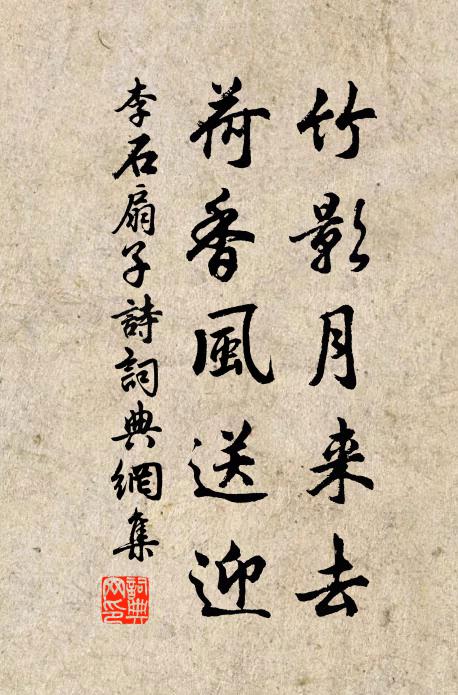 竹影月来去
荷香風送迎
李石扇子詩詞典網集
詞典